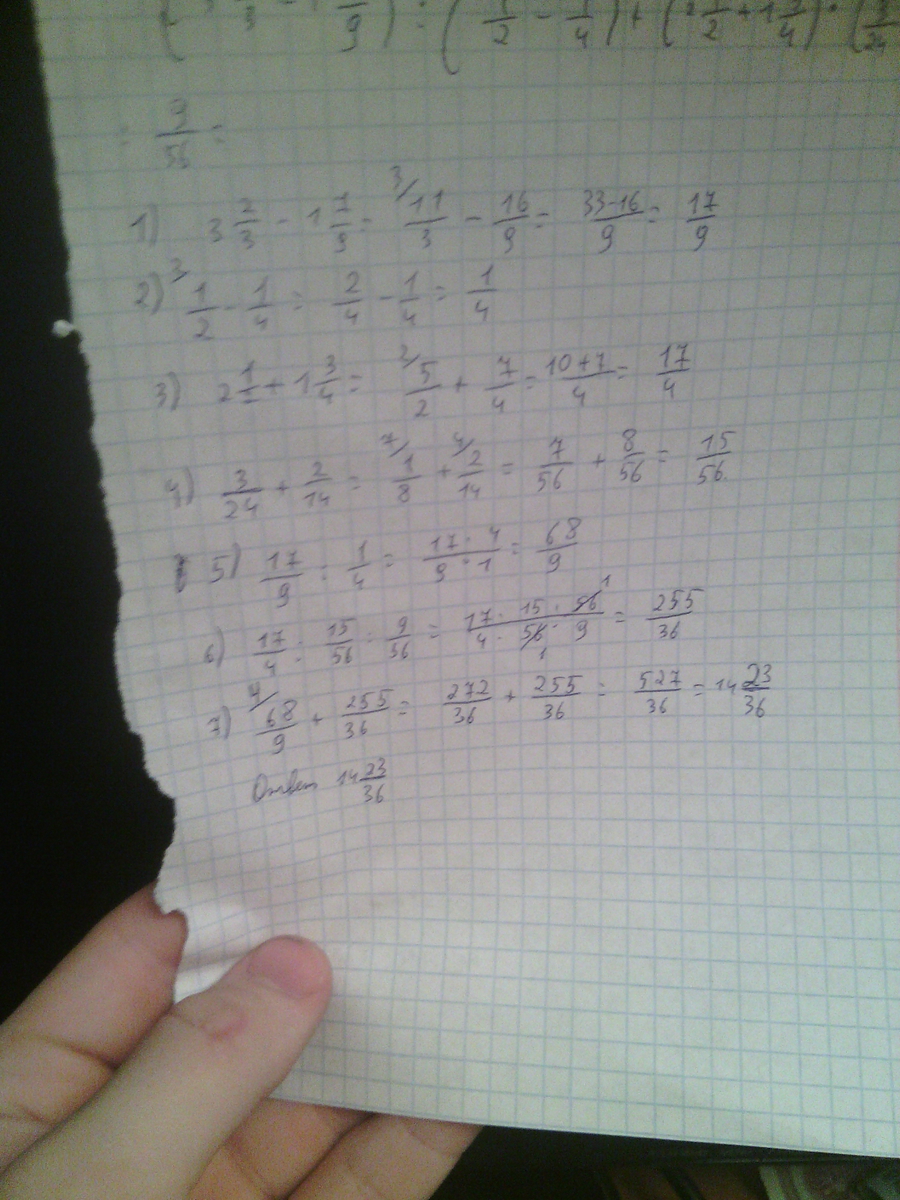 = 9/56 =
1) 3 2/3 - 1 7/9 = 3/ 11/3 - 16/9 = 33-16/9 = 17/9
2) 1/2 - 1/4 = 2/4 - 1/4 = 1/4
3) 2 1/2 + 1 3/4 = 2/ 5/2 + 7/4 = 10+7/4 = 17/4
4) 3/24 + 2/14 = 7/ 1/8 + 4/ 2/14 = 7/56 + 8/56 = 15/56
5) 17/9 : 1/4 = 17·4/9·1 = 68/9
6) 17/4 · 15/56 : 9/56 = 17·15·56/4·56·9 = 255/36
7) 4/ 68/9 + 255/36 = 272/36 + 255/36 = 527/36 = 14 23/36
Ответ 14 23/36